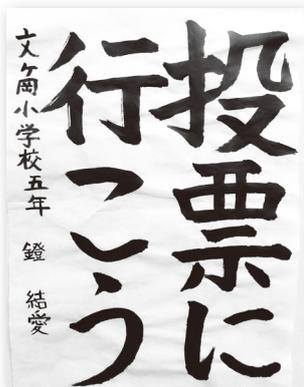 投票に
行こう
文ケ岡小学校五年 鐙 結愛